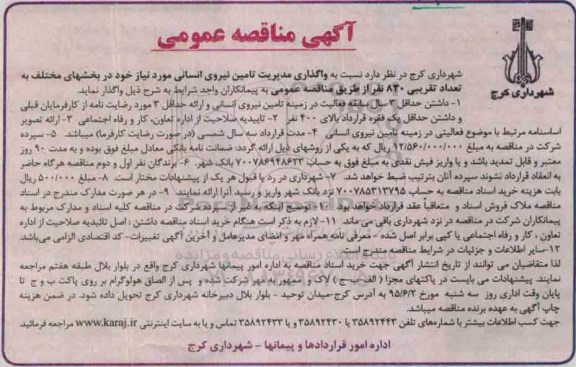 آگهی مناقصه عمومی
شهرداری کرج
شهرداری کرج در نظر دارد نسبت به واگذاری مدیریت تامین نیروی انسانی مورد نیاز خود در بخشهای مختلف به
تعداد تقریبی ۸۳۰ نفر از طریق مناقصه عمومی به پیمانکاران واجد شرایط به شرح ذیل واگذار نماید.
۱- داشتن حداقل ۳ سال سابقه فعالیت در زمینه تامین نیروی انسانی و ارائه حداقل ۳ مورد رضایت نامه از کارفرمایان قبلی
و داشتن حداقل یک فقره قرارداد بالای ۴۰۰ نفر ۲- تاییدیه صلاحیت از اداره تعاون، کار و رفاه اجتماعی ۳- ارائه تصویر
اساسنامه مرتبط با موضوع فعالیتی در زمینه تامین نیروی انسانی ۴- مدت قرارداد سه سال شمسی (در صورت رضایت کارفرما) میباشد. ۵- سپرده
شرکت در مناقصه به مبلغ ۱۲/۵۶۰/۰۰۰/۰۰۰ ریال که به یکی از روشهای ذیل ارائه گردد: ضمانت نامه بانکی معادل مبلغ فوق بوده و به مدت ۹۰ روز
معتبر و قابل تمدید باشد و یا واریز فیش نقدی به مبلغ فوق به حساب ۷۰۰۷۸۶۹۴۸۶۲۳ بانک شهر. ۶- برندگان نفر اول و دوم مناقصه هرگاه حاضر
به انعقاد قرارداد نشوند سپرده آنان بترتیب ضبط خواهد شد. ۷- شهرداری در رد یا قبول هر یک از پیشنهادات مختار است. ۸- مبلغ ۵۰۰/۰۰۰ ریال
بابت هزینه خرید اسناد مناقصه به حساب ۷۰۰۷۸۵۳۱۳۷۹۵ نزد بانک شهر واریز و رسید آنرا ارائه نمایند. ۹- در هر صورت مدارک مندرج در اسناد
مناقصه ملاک فروش اسناد و متعاقباً عقد قرارداد خواهد بود. ۱۰- توضیح اینکه به غیر از سپرده شرکت در مناقصه کلیه اسناد و مدارک مربوط به
پیمانکاران شرکت در مناقصه در نزد شهرداری باقی می‌ماند. ۱۱- لازم به ذکر است هنگام خرید اسناد مناقصه داشتن : اصل تائیدیه صلاحیت از اداره
تعاون ، کار و رفاه اجتماعی یا کپی برابر اصل شده - معرفی نامه همراه مهر و امضای مدیرعامل و آخرین آگهی تغییرات- کد اقتصادی الزامی می‌باشد.
۱۲-سایر اطلاعات و جزئیات در شرایط مناقصه مندرج است.
لذا متقاضیان می توانند از تاریخ انتشار آگهی جهت خرید اسناد مناقصه به اداره امور پیمانها شهرداری کرج واقع در بلوار بلال طبقه هفتم مراجعه
نمایند. پیشنهادات می بایست در پاکتهای مجزا ( الف، ب، ج ) لاک و ممهور به مهر شرکت شده و پس از الصاق هولوگرام بر روی پاکت ب و ج تا
پایان وقت اداری روز سه شنبه مورخ ۹۵/۶/۲ به آدرس کرج-میدان توحید - بلوار بلال دبیرخانه شهرداری کرج تحویل داده شود. در ضمن هزینه
چاپ آگهی به عهده برنده مناقصه میباشد.
جهت کسب اطلاعات بیشتر با شماره‌های تلفن ۳۵۸۹۲۴۴۳ یا ۳۵۸۹۲۴۳۰ و یا ۳۵۸۹۲۴۳۳ تماس و یا به سایت اینترنتی www.karaj.ir مراجعه فرمائید.
اداره امور قراردادها و پیمانها - شهرداری کرج